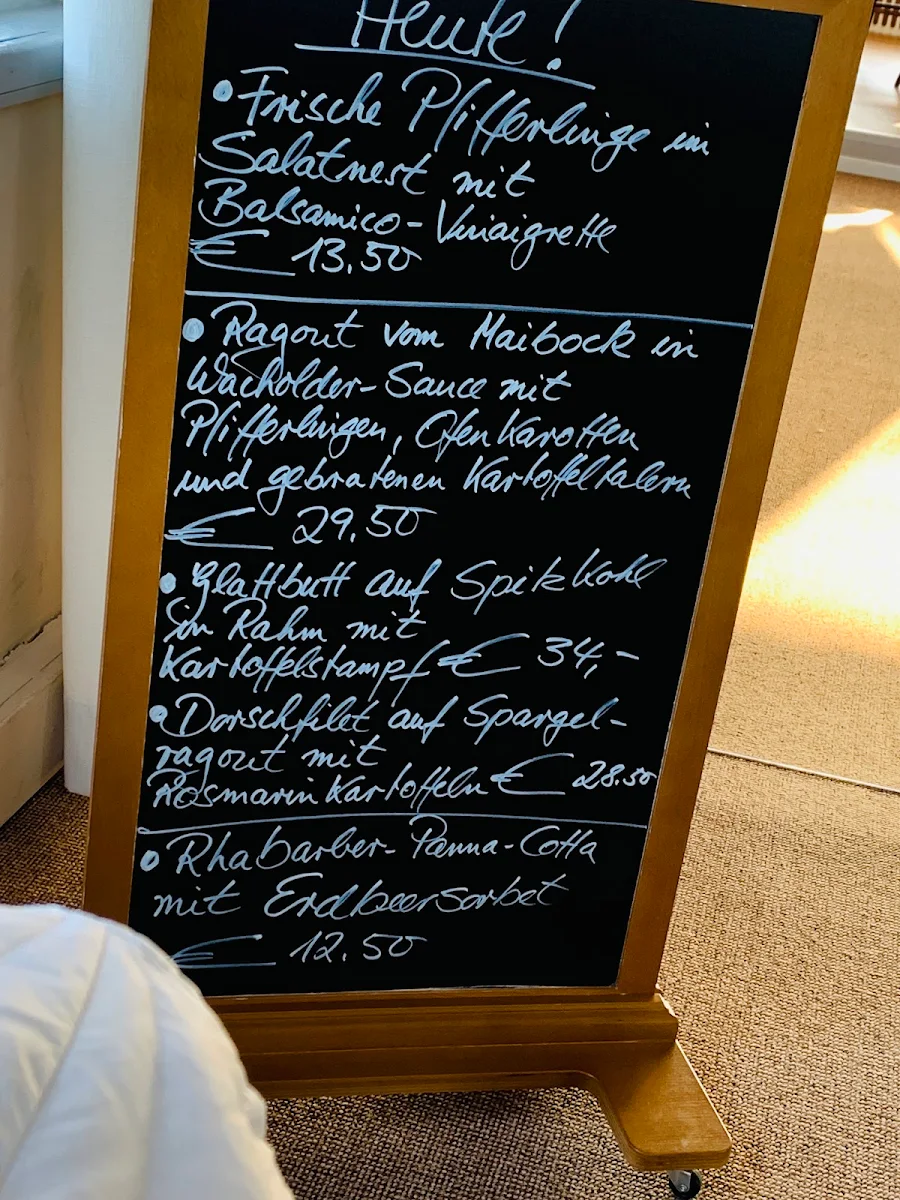 Heute!
• Frische Pfifferlinge im
Salatnest mit
Balsamico-Vinaigrette
€ 13.50
• Ragout vom Maibock in
Wacholder-Sauce mit
Pfifferlingen, Ofenkarotten
und gebratenen Kartoffeltalern
€ 29.50
• Glattbutt auf Spitzkohl
in Rahm mit
Kartoffelstampf € 34,-
• Dorschfilet auf Spargel-
ragout mit
Rosmarinkartoffeln € 28.50
• Rhabarber-Panna-Cotta
mit Erdbeersorbet
€ 12.50